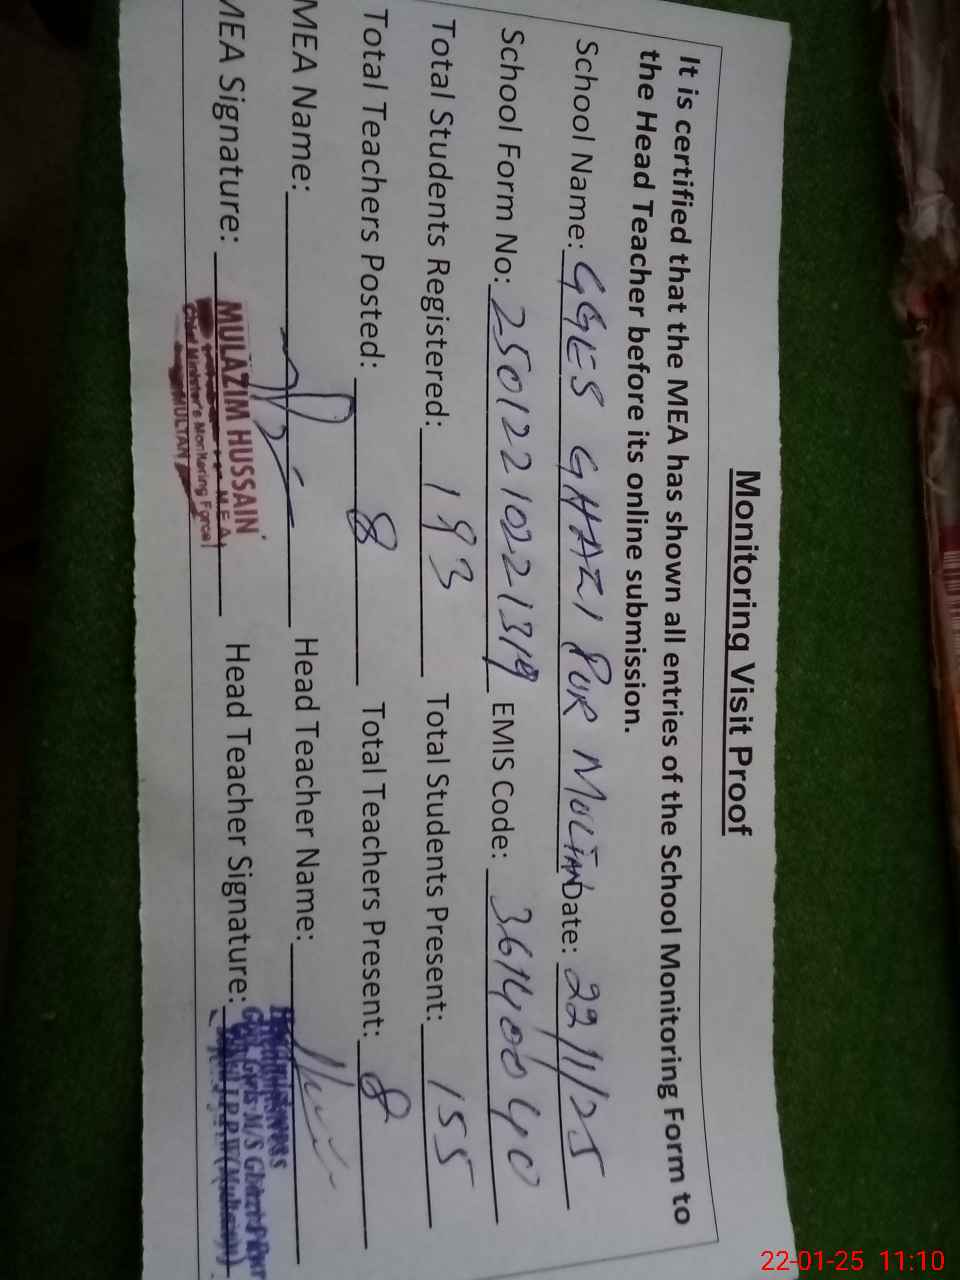 Monitoring Visit Proof
It is certified that the MEA has shown all entries of the School Monitoring Form to
the Head Teacher before its online submission.
School Name: GGES GHAZI PUR MULTAN Date: 22/1/25
School Form No: 25012210221319 EMIS Code: 36140040
Total Students Registered: 193 Total Students Present: 155
Total Teachers Posted: 8 Total Teachers Present: 8
MEA Name: Head Teacher Name:
MEA Signature: Head Teacher Signature:
MULAZIM HUSSAIN
M.E.A
Chief Minister's Monitoring Force
MULTAN
Headmistress
Govt Girls M/S
22-01-25 11:10